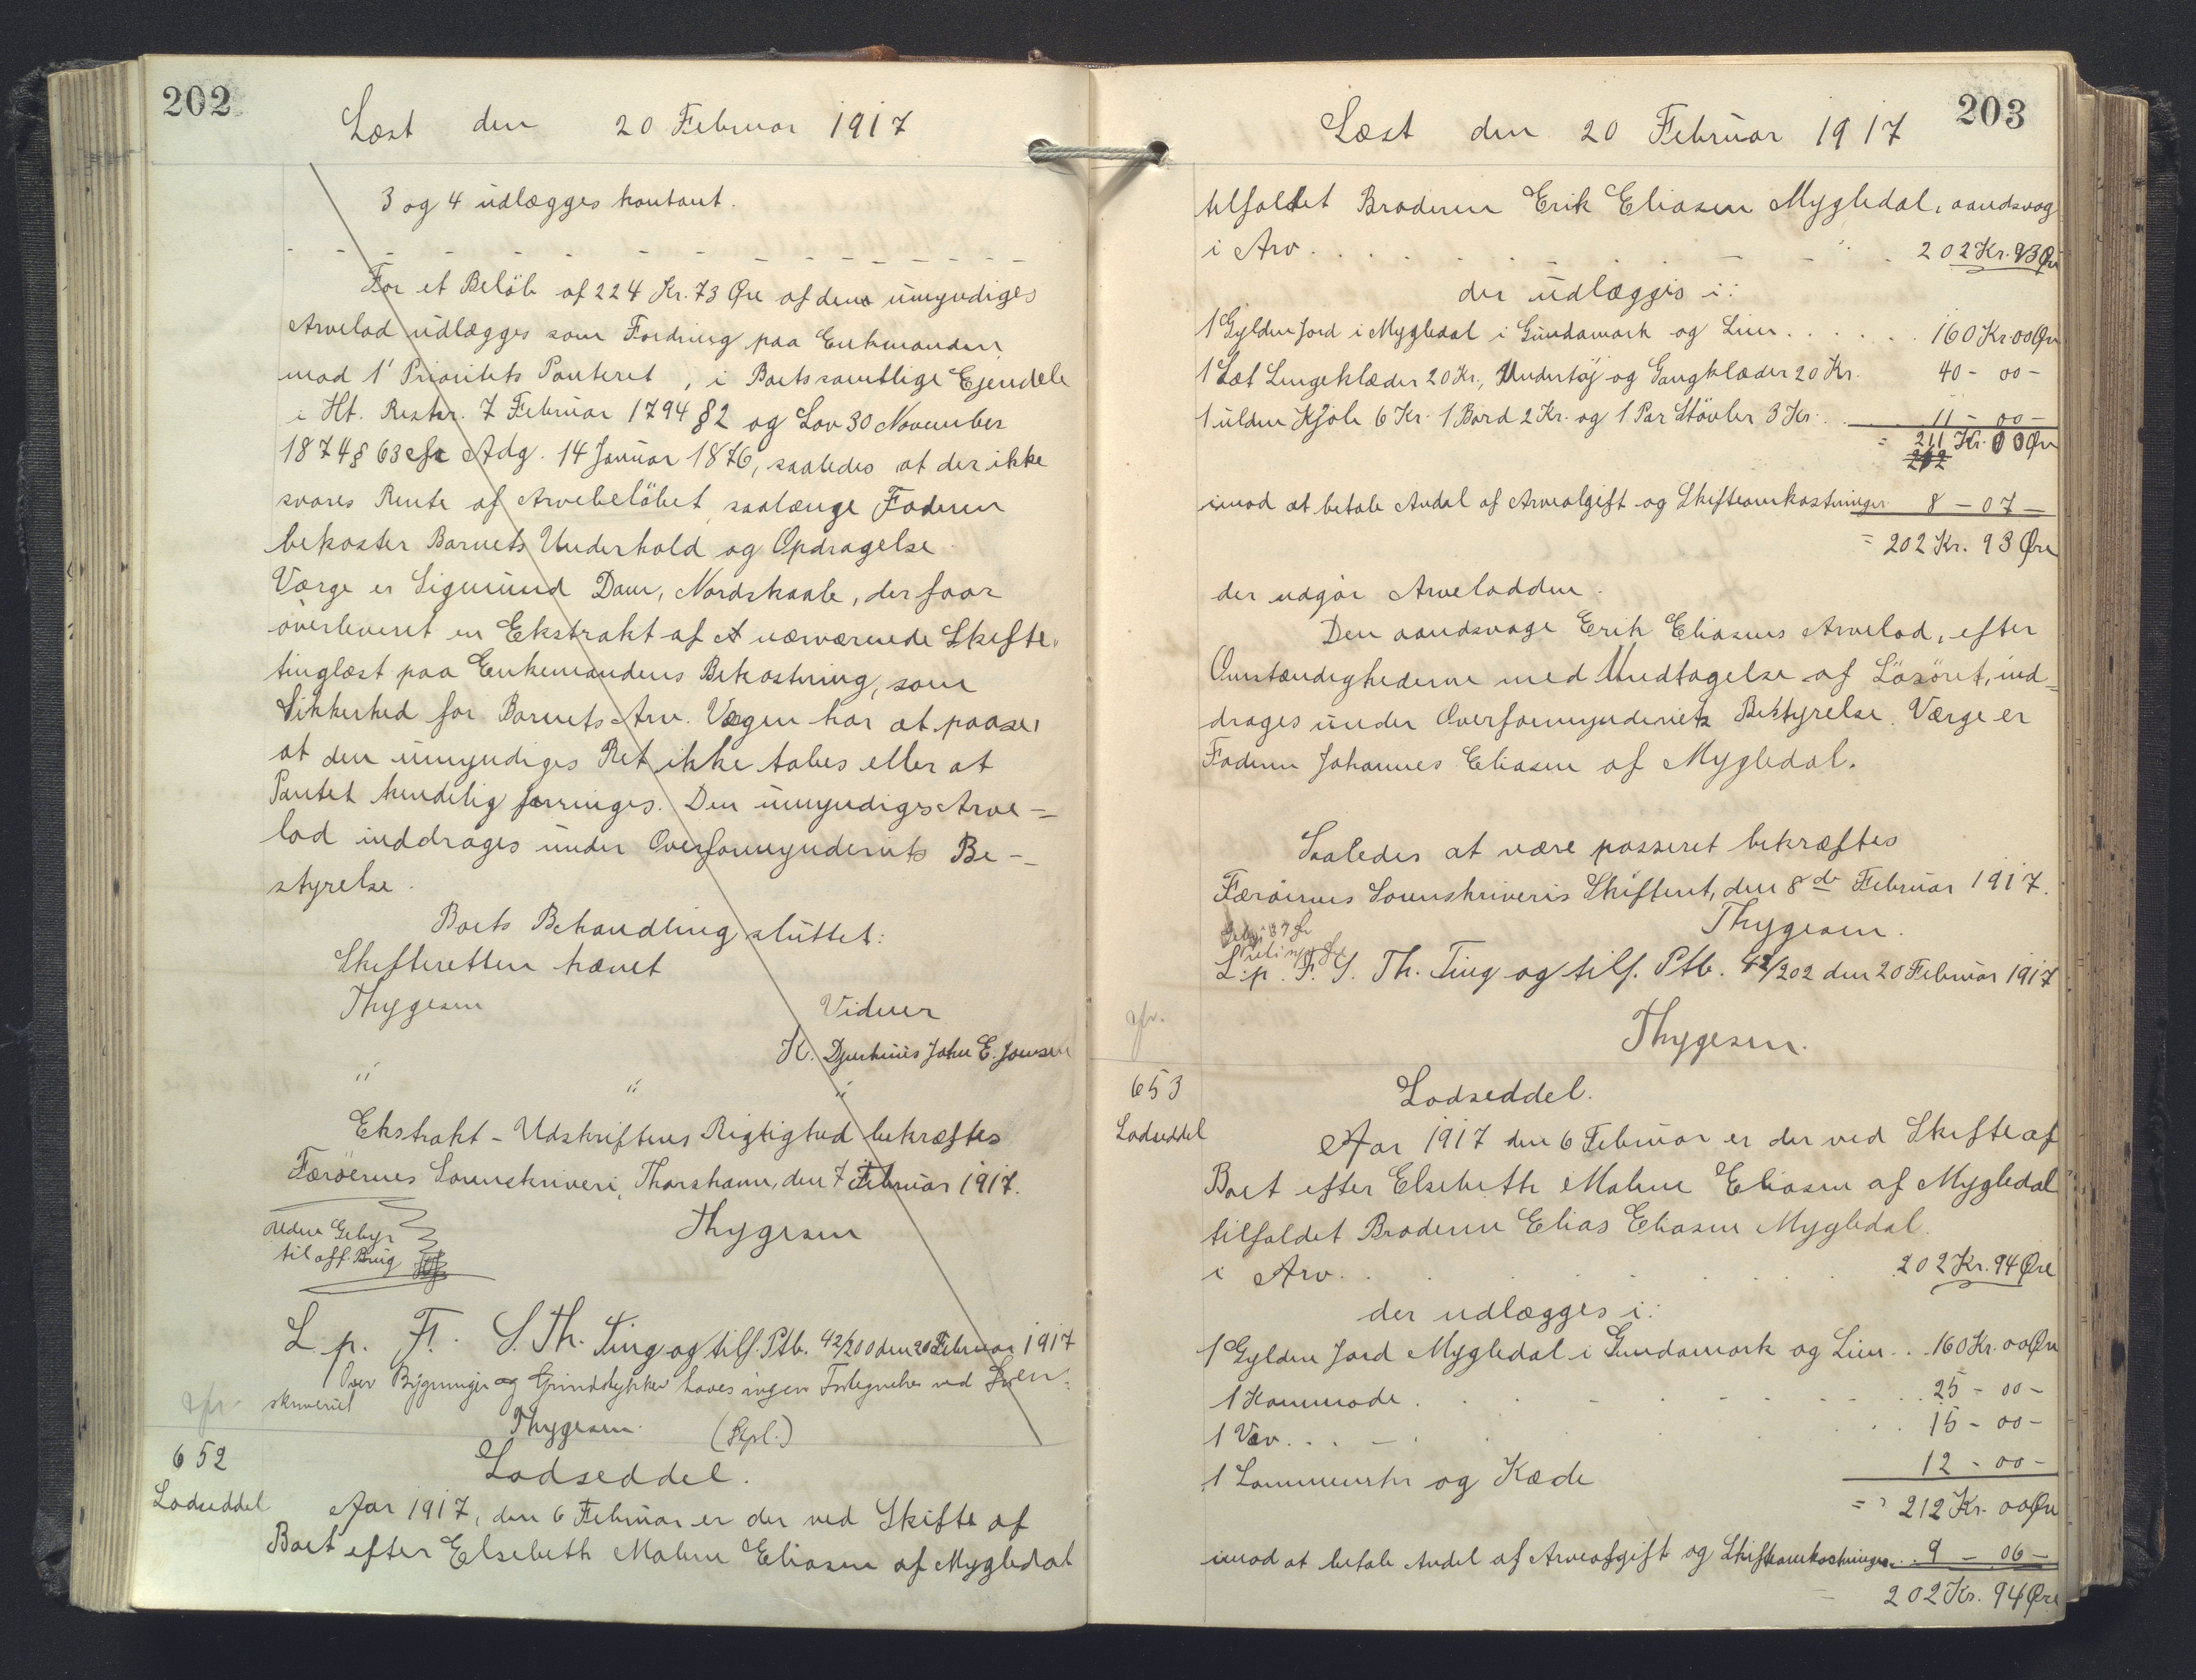 202
Læst den 20 Februar 1917
3 og 4 udlægges kontant.
For et Beløb af 224 Kr. 73 Øre af den umyndiges
Arvelod udlægges som Fordring paa Enkemanden
mod 1' Prioritets Panteret, i Boets samtlige Ejendele
i Ht. Reskr. 7 Februar 1794 § 2 og Lov 30 November
1874 § 63 cfr Adg. 14 Januar 1876, saaledes at der ikke
svares Rente af Arvebeløbet saalænge Faderen
bekoster Barnets Underhold og Opdragelse.
Værge er Sigmund Dam, Nordskaale, der faar
overleveret en Ekstrakt af nærværende Skifte,
tinglæst paa Enkemandens Bekostning, som
Sikkerhed for Barnets Arv. Værgen har at paase,
at den umyndiges Ret ikke tabes eller at
Pantet kendelig forringes. Den umyndiges Arve-
lod inddrages under Overformynderiets Be-
styrelse.
Boets Behandling sluttet:
Skifteretten hævet
Thygesen
Vidner
K. Djurhuus John E. Jensen
" " "
Ekstrakt-Udskriftens Rigtighed bekræftes
Færøernes Sorenskriveri, Thorshavn, den 7 Februar 1917.
Thygesen
uden Gebyr
til off. Brug
L. p. F. S. Th. Ting og tilf. Ptb. 42/200 den 20 Februar 1917
Over Bygninger og Grundstykker haves ingen Fortegnelse ved Soren-
skriveriet
Thygesen. (Kpl.)
652
Lodseddel
Lodseddel.
Aar 1917, den 6 Februar er der ved Skifte af
Boet efter Elsebeth Malene Eliasen af Mygledal
203
Læst den 20 Februar 1917
tilfaldet Broderen Erik Eliasen Mygledal, aandsvag
i Arv. . . . 202 Kr. 93 Øre
der udlægges i:
1 Gylden Jord i Mygledal i Gundamark og Lien . . . 160 Kr 00 Øre
1 Sæt Sengeklæder 20 Kr., Undertøj og Gangklæder 20 Kr. 40 - 00 -
1 ulden Kjole 6 Kr. 1 Bord 2 Kr. og 1 Par Støvler 3 Kr. . . 11 - 00 -
= 211 Kr. 00 Øre
212
imod at betale Andel af Arveafgift og Skifteomkostninger 8 - 07 -
= 202 Kr. 93 Øre
der udgør Arvelodden.
Den aandsvage Erik Eliasens Arvelod, efter
Omstændighederne med Undtagelse af Løsøret, ind-
drages under Overformynderiets Bestyrelse. Værge er
Faderen Johannes Eliasen af Mygledal.
Saaledes at være passeret bekræftes
Færøernes Sorenskriveris Skifteret, den 8de Februar 1917.
Thygesen.
L. p. F. S. Th. Ting og tilf. Ptb. 42/202 den 20 Februar 1917
Thygesen.
653
Lodseddel
Lodseddel.
Aar 1917 den 6 Februar er der ved Skifte af
Boet efter Elsebeth Malene Eliasen af Mygledal
tilfaldet Broderen Elias Eliasen Mygledal.
i Arv. . . 202 Kr. 94 Øre
der udlægges i:
1 Gylden Jord Mygledal i Gundamark og Lien . . 160 Kr. 00 Øre
1 Kommode . . . 25 - 00 -
1 Væv . . . 15 - 00 -
1 Lommeuhr og Kæde 12 - 00 -
= 212 Kr. 00 Øre
imod at betale Andel af Arveafgift og Skifteomkostninger. . . 9 - 06 -
202 Kr. 94 Øre